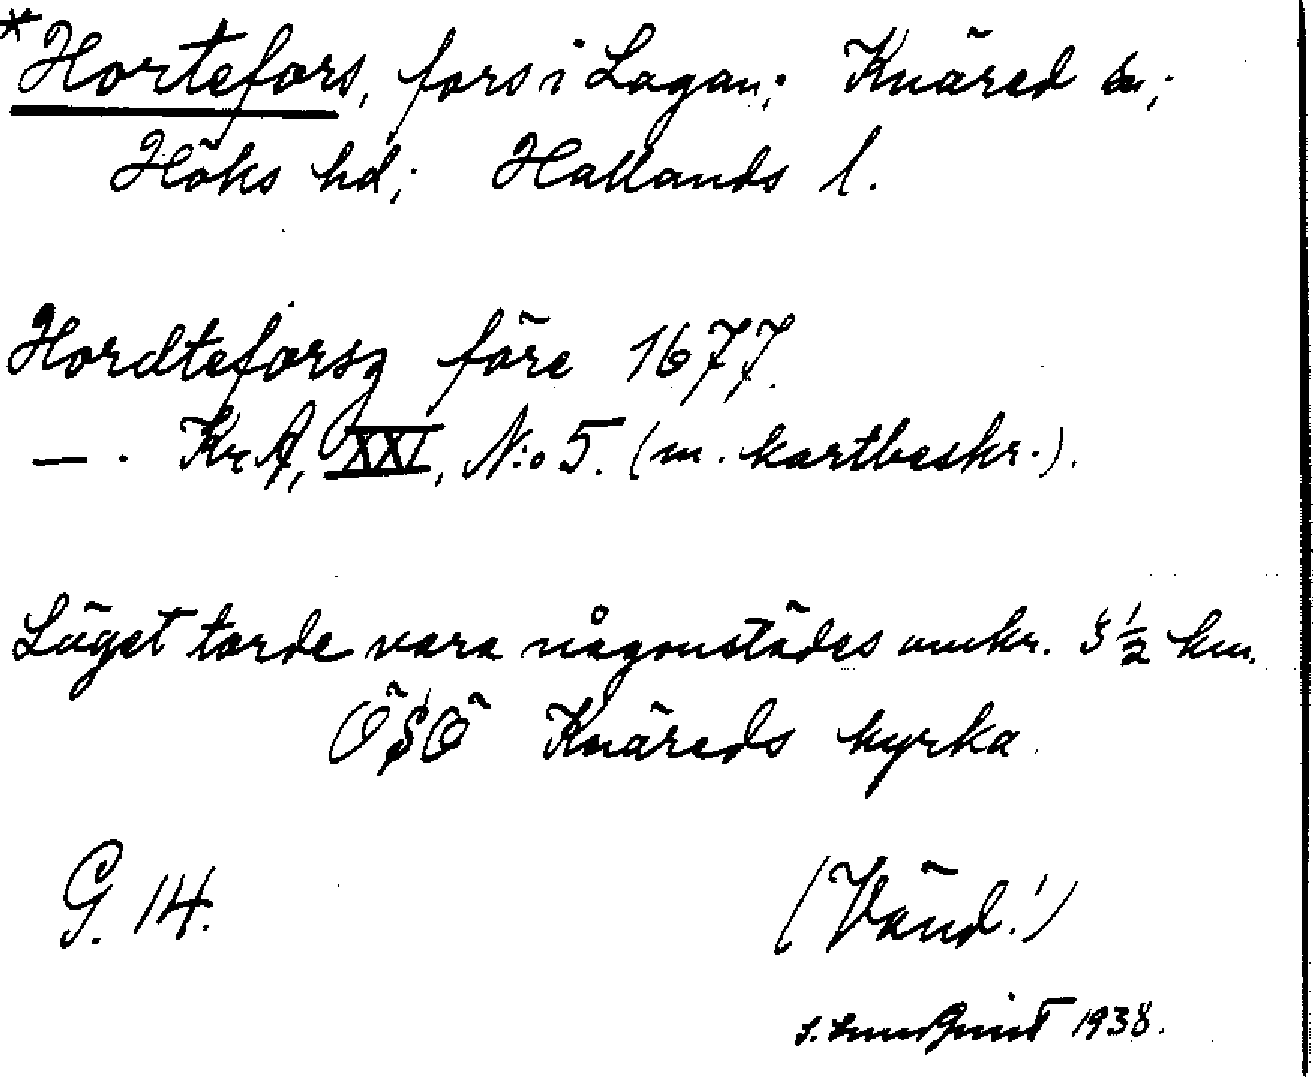 *Hortefors, fors i Lagan; Knäred sn;
Höks hd; Hallands l.
Hordteforsz före 1677.
— . Kr A, XXI, N:o 5. (m. kartbeskr.).
Läget torde vara någonstädes omkr. 3 ½ km.
ÖSÖ Knäreds kyrka.
G. 14.
(Vänd!)
1938.